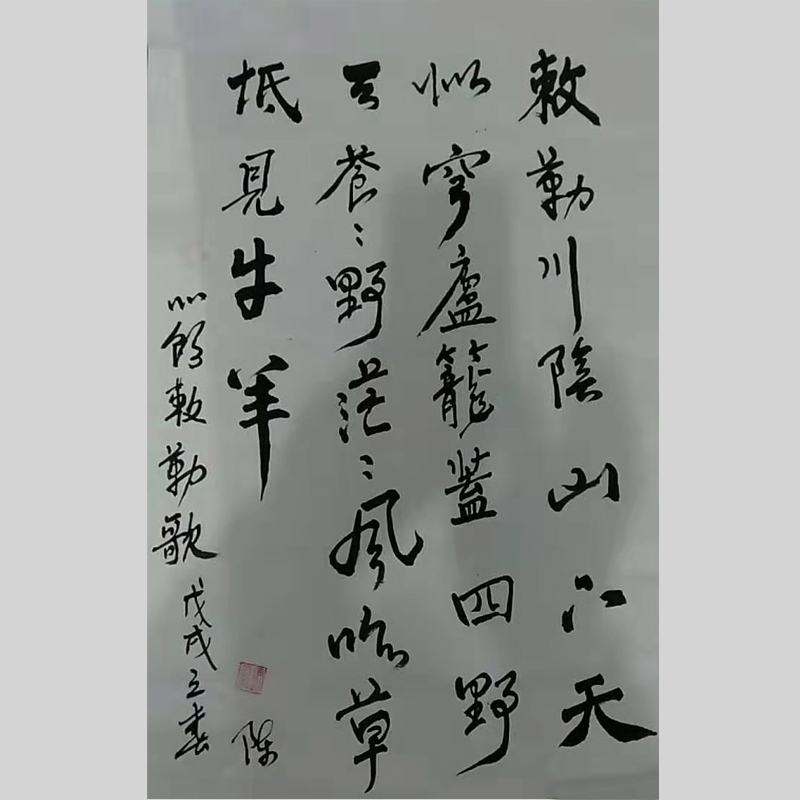 敕勒川陰山下天
似穹廬籠蓋四野
天蒼〻野茫〻風吹草
低見牛羊
敕勒歌 戊戌立春
陈